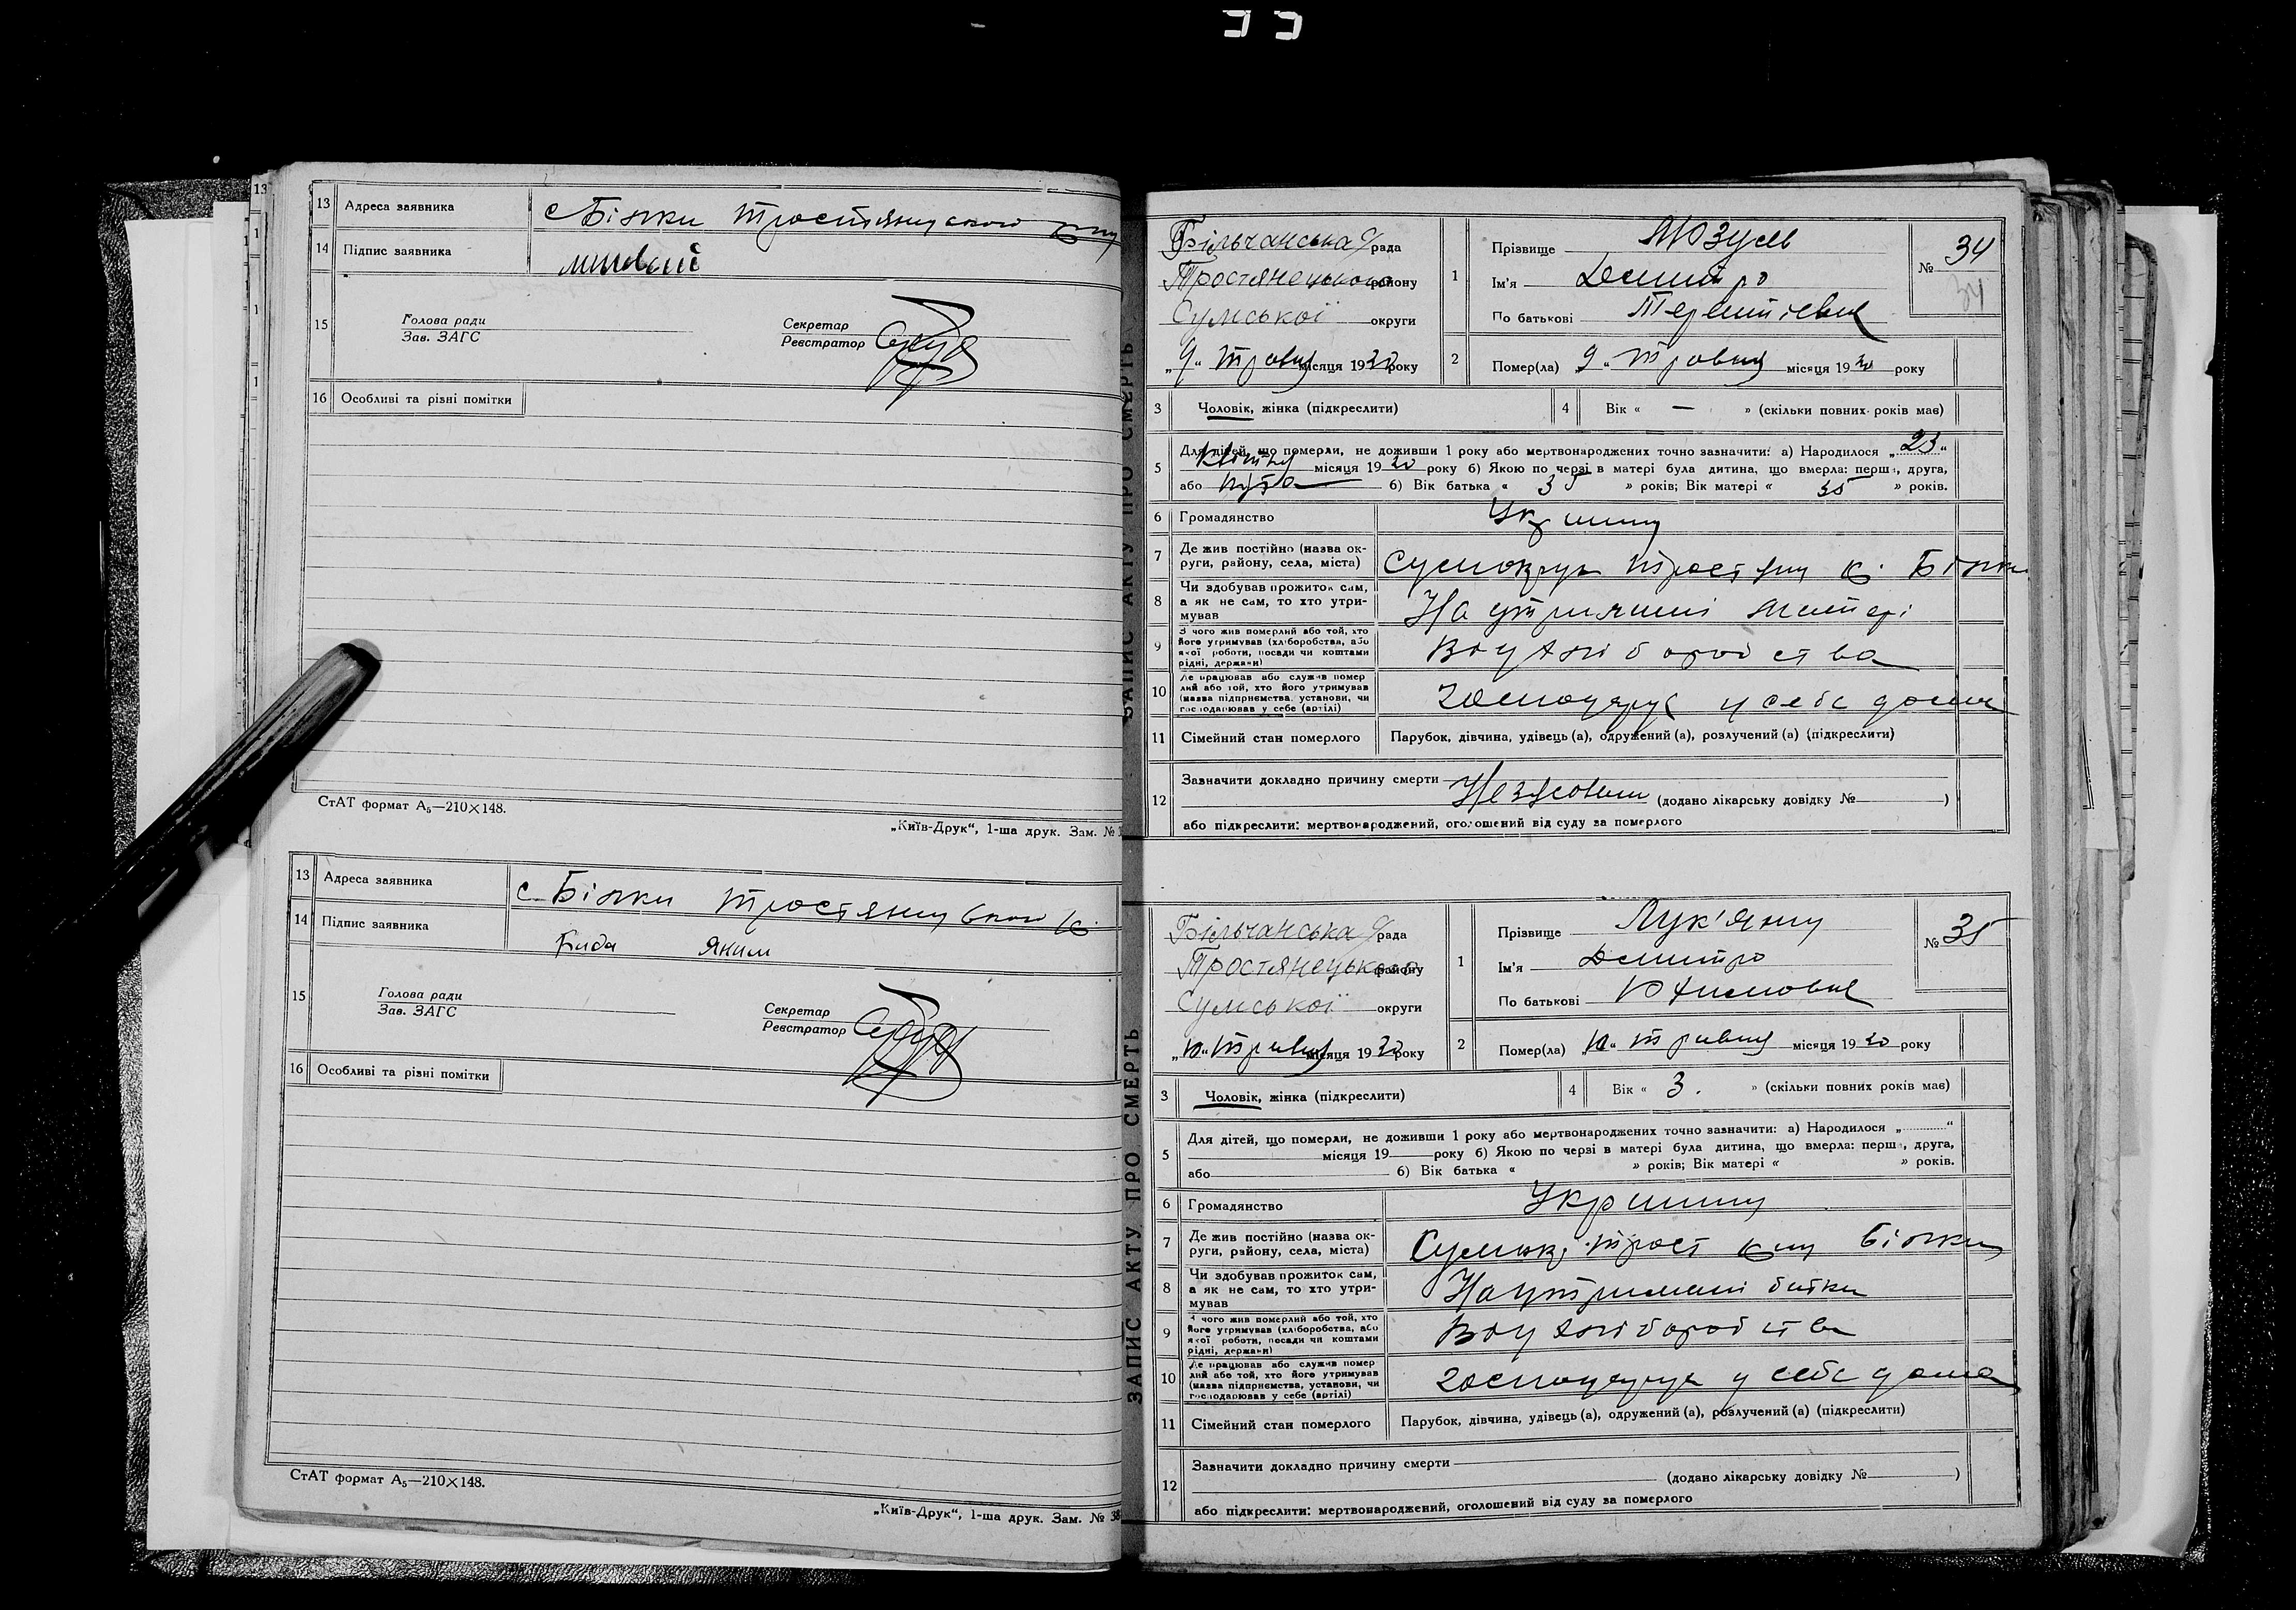 13 Адреса заявника с Білки
14 Підпис заявника
15 Голова ради
Зав. ЗАГС
Секретар
Реєстратор
16 Особливі та різні помітки
СтАТ формат А₅—210×148.
„Київ-Друк“, 1-ша друк. Зам. №
13 Адреса заявника с. Білки
14 Підпис заявника Яким
15 Голова ради
Зав. ЗАГС
Секретар
Реєстратор
16 Особливі та різні помітки
СтАТ формат А₅—210×148.
„Київ-Друк“, 1-ша друк. Зам. № 38
ЗАПИС АКТУ ПРО СМЕРТЬ
Більчанська с/рада
Тростянецького району
Сумської округи
„9“ травня місяця 1930 року
1 Прізвище
Ім'я Дмитро
По батькові
№ 34
34
2 Помер(ла) „9“ травня місяця 1930 року
3 Чоловік, жінка (підкреслити)
4 Вік « — » (скільки повних років має)
5 Для дітей, що померли, не доживши 1 року або мертвонароджених точно зазначити: а) Народилося „23“
квітня місяця 1930 року б) Якою по черзі в матері була дитина, що вмерла: перша, друга,
або п'ята б) Вік батька « 35 » років; Вік матері « 35 » років.
6 Громадянство
7 Де жив постійно (назва округи, району, села, міста)
8 Чи здобував прожиток сам, а як не сам, то хто утримував На утриманні матері
9 З чого жив померлий або той, хто його утримував (хліборобства, або якої роботи, посади чи коштами рідні, держави)
10 Де працював або служив померлий або той, хто його утримував (назва підприємства, установи, чи господарював у себе (артілі) у себе дома
11 Сімейний стан померлого Парубок, дівчина, удівець (а), одружений (а), розлучений (а) (підкреслити)
12 Зазначити докладно причину смерти
(додано лікарську довідку № )
або підкреслити: мертвонароджений, оголошений від суду за померлого
ЗАПИС АКТУ ПРО СМЕРТЬ
Більчанська с/рада
Тростянецького району
Сумської округи
„10“ травня місяця 1930 року
1 Прізвище Лук'янц
Ім'я Дмитро
По батькові
№ 35
2 Помер(ла) „10“ травня місяця 1930 року
3 Чоловік, жінка (підкреслити)
4 Вік « 3. » (скільки повних років має)
5 Для дітей, що померли, не доживши 1 року або мертвонароджених точно зазначити: а) Народилося „ “
місяця 19 року б) Якою по черзі в матері була дитина, що вмерла: перша, друга,
або б) Вік батька « » років; Вік матері « » років.
6 Громадянство
7 Де жив постійно (назва округи, району, села, міста) Білки
8 Чи здобував прожиток сам, а як не сам, то хто утримував На утримані батька
9 З чого жив померлий або той, хто його утримував (хліборобства, або якої роботи, посади чи коштами рідні, держави)
10 Де працював або служив померлий або той, хто його утримував (назва підприємства, установи, чи господарював у себе (артілі) у себе дома
11 Сімейний стан померлого Парубок, дівчина, удівець (а), одружений (а), розлучений (а) (підкреслити)
12 Зазначити докладно причину смерти
(додано лікарську довідку № )
або підкреслити: мертвонароджений, оголошений від суду за померлого